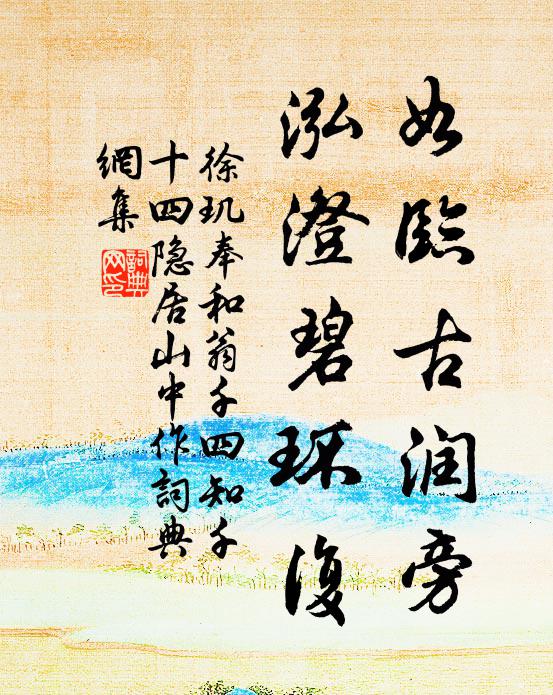 如臨古润旁
泓澄碧环復
徐玑奉和翁千四知千
十四隐居山中作詞典
網集
詞典
网印